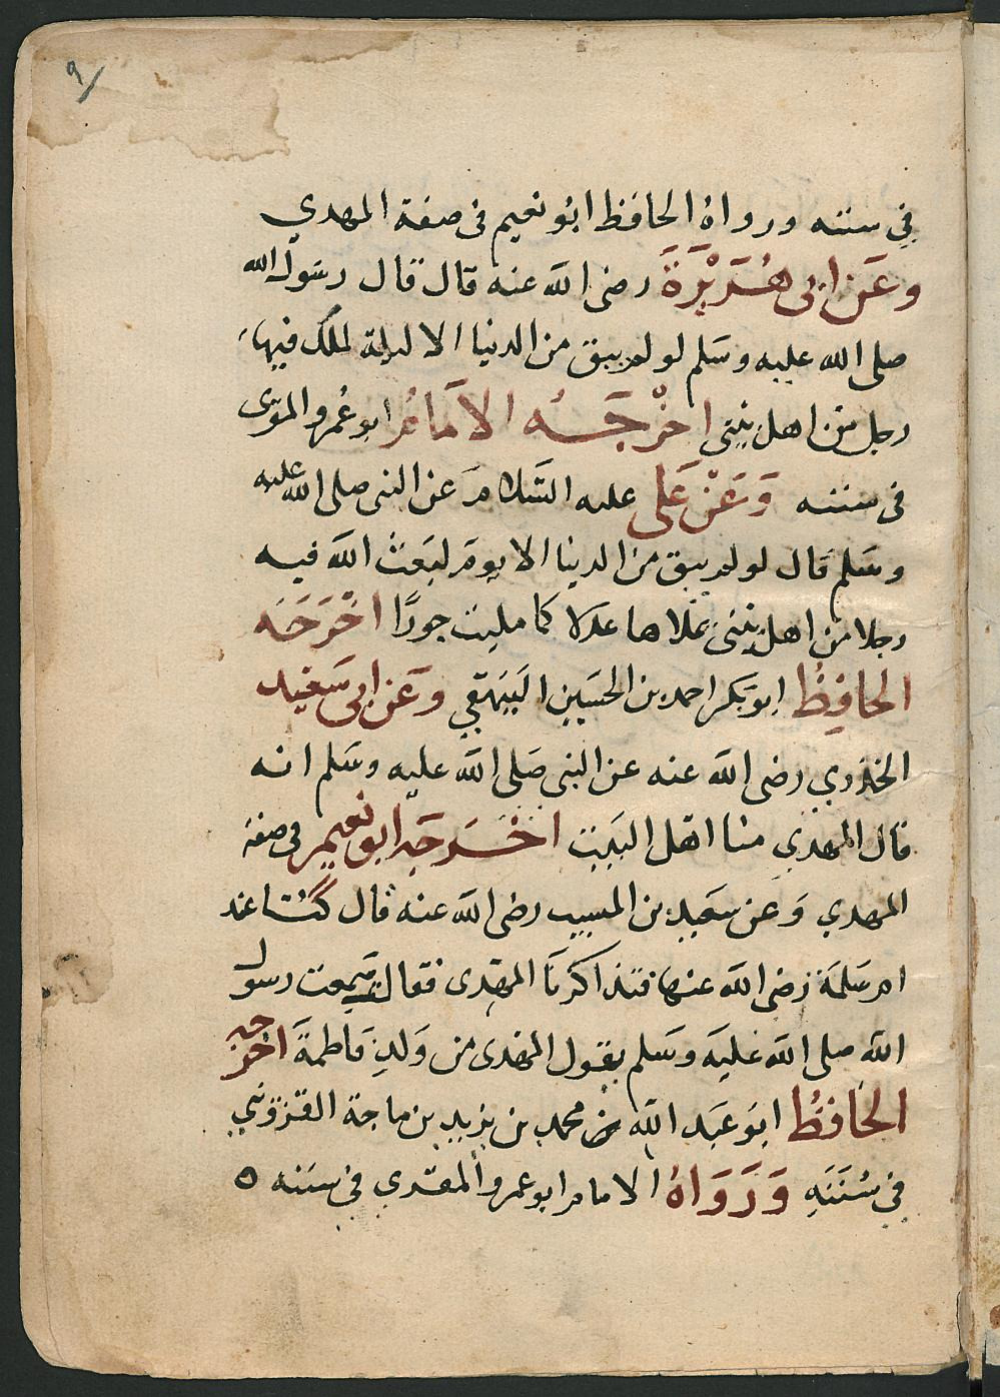 ٩
في سننه ورواه الحافظ ابو نعيم فى صفة المهدي
وعن ابى هريرة رضى الله عنه قال قال رسول الله
صلى الله عليه وسلم لو لم يبق من الدنيا الا ليلة لملك فيها
رجل من اهل بيتى اخرجه الامام ابو عمرو المقرى
فى سننه وعن على عليه السلام عن النبى صلى الله عليه
وسلم قال لو لم يبق من الدينا الا يوم لبعث الله فيه
رجلا من اهل بيتى يملاها عدلا كما مليت جورًا اخرجه
الحافظ ابو بكر احمد بن الحسين البيهقي وعن ابى سعيد
الخدري رضى الله عنه عن النبى صلى الله عليه وسلم انه
قال المهدي منا اهل البيت اخرجه ابو نعيم فى صفة
المهدي وعن سعيد بن المسيب رضى الله عنه قال كنا عند
ام سلمة رضى الله عنها فتذاكرنا المهدى فقال سمعت رسول
الله صلى الله عليه وسلم يقول المهدى من ولد فاطمة اخرجه
الحافظ ابو عبد الله محمد بن يزيد بن ماجة القزوينى
فى سننه ورواه الامام ابو عمرو المقري فى سننه ه